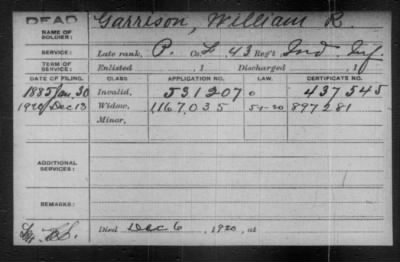 DEAD
Garrison, William R.
NAME OF SOLDIER:
SERVICE: Late rank, P. Co. 43 Reg't Ind Inf
TERM OF SERVICE: Enlisted , 1 Discharged , 1
DATE OF FILING. CLASS APPLICATION NO. LAW. CERTIFICATE NO.
1885 Jan. 30 Invalid, 531207 0 437545
1920 Dec 13 Widow, 1167.035 5-1-20 897281
Minor,
ADDITIONAL SERVICES:
REMARKS:
Died Dec 6, 1920, at